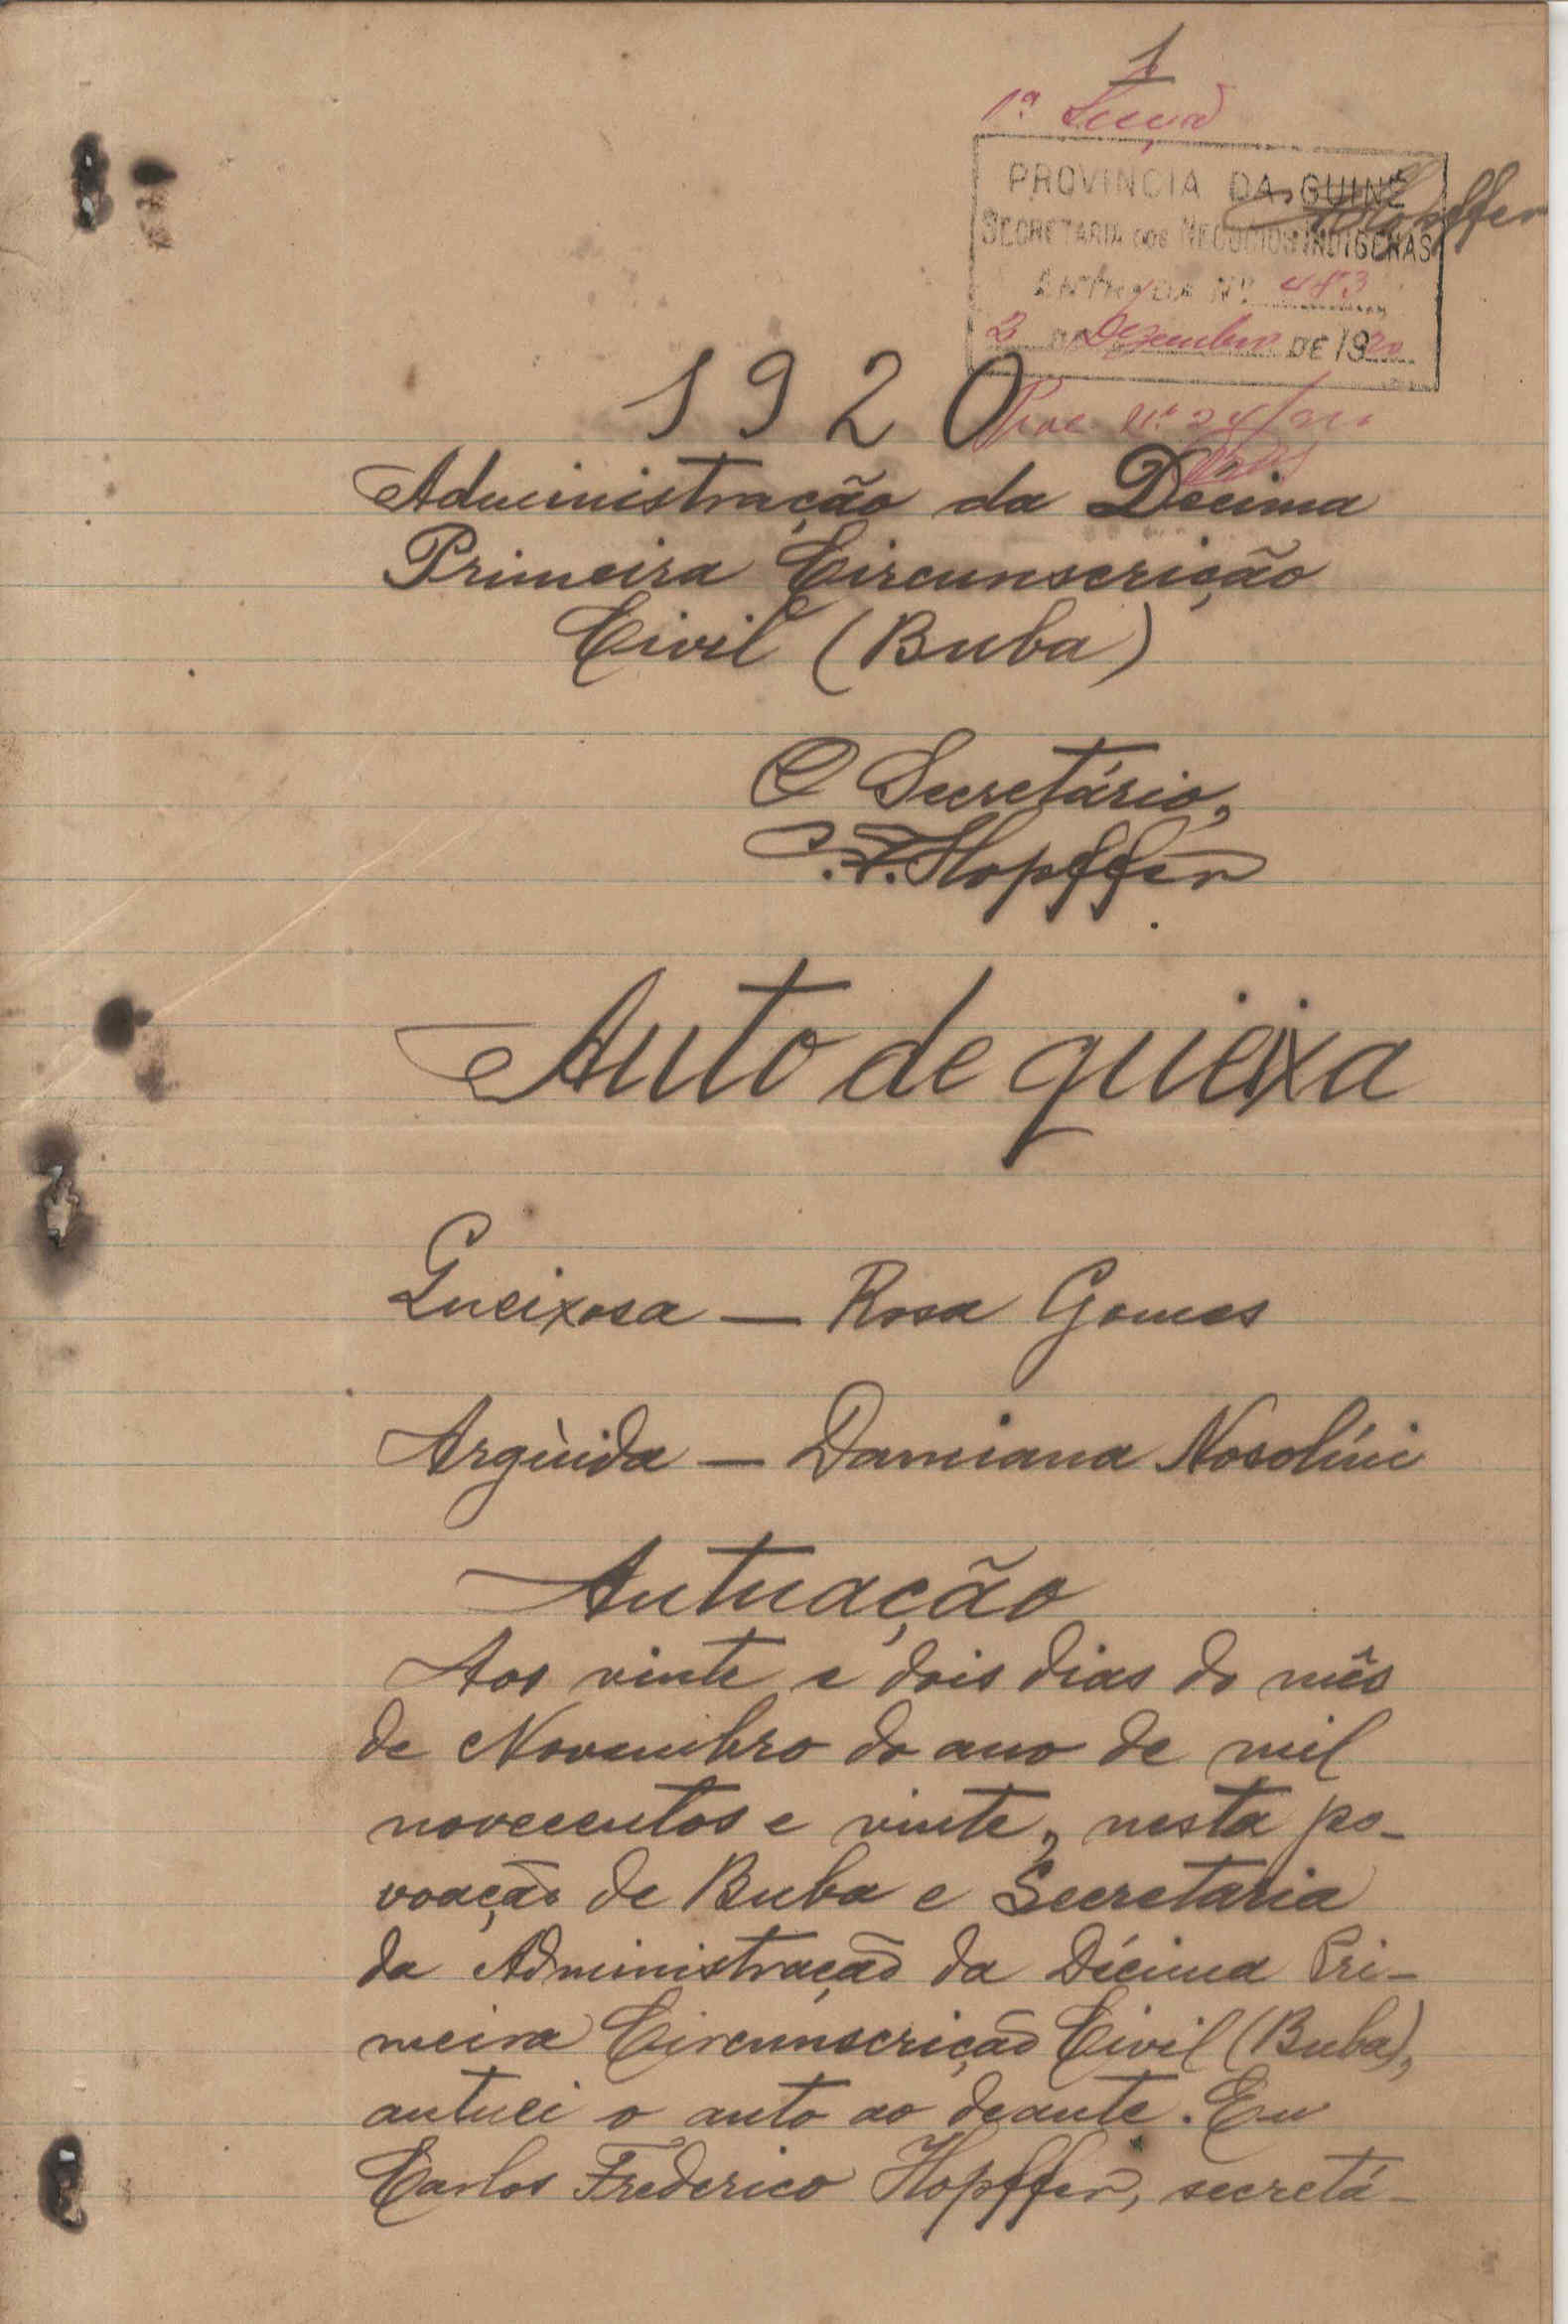 1
1ª Secção
PROVINCIA DA GUINÉ
Hopffer
SECRETARIA DOS NEGOCIOS INDIGENAS
ENTRADA Nº 483
2 DE Dezembro DE 1920
1920
Proc. nº 24/920
Administração da Decima
Primeira Circunscrição
Civil (Buba)
O Secretário,
C. F. Hopffer
Auto de queixa
Queixosa — Rosa Gomes
Argùida — Damiana Nosolíni
Autuação
Aos vinte e dois dias do mês
de Novembro do ano de mil
novecentos e vinte, nesta po-
voação de Buba e Secretaria
da Administração da Décima Pri-
meira Circunscrição Civil (Buba),
autuei o auto ao deante. Eu
Carlos Frederico Hopffer, secretá-